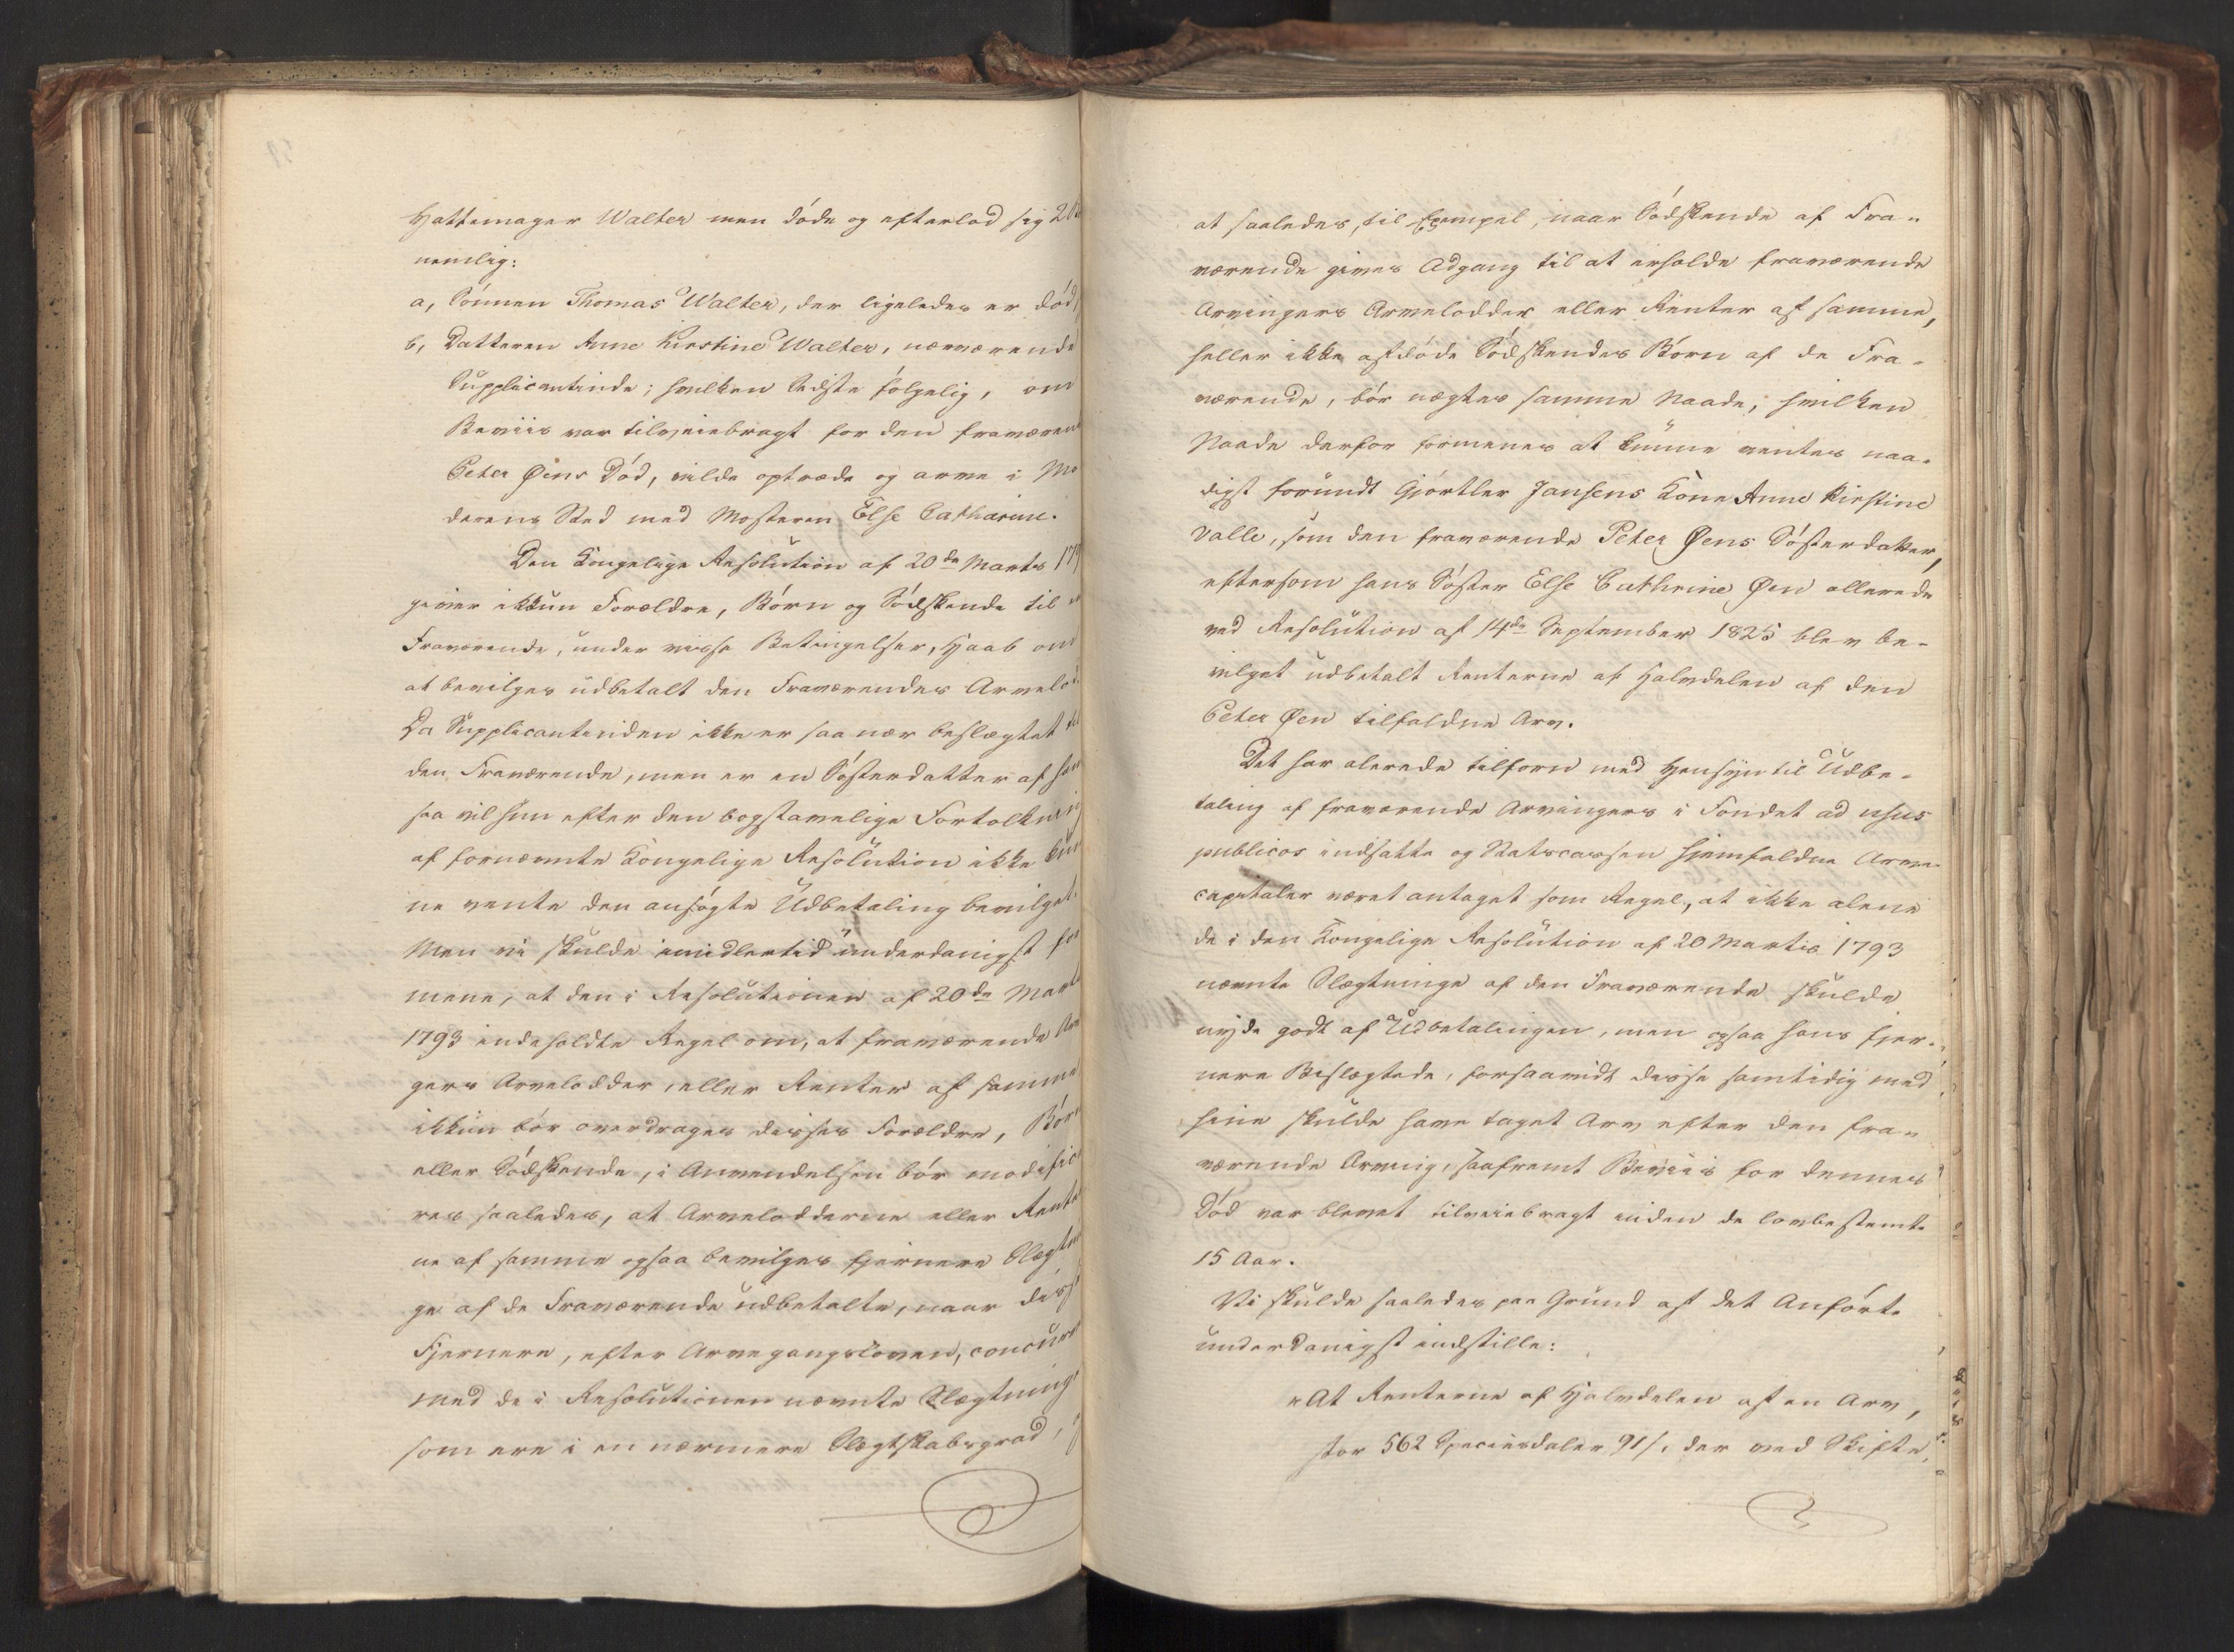 Hattemager Walter men døde og efterlod sig 2
nemlig:
a, Sønnen Thomas Walter, der ligeledes er død
b, Datteren Anne Kirstine Walter, nærværende
Supplicantinde; hvilken Sidste følgelig, om
Beviis var tilveiebragt for den fraværen
Peter Øens Død, vilde optræde og arve i Mo
derens Sted med Mosteren Else Catharine.
Den Kongelige Resolution af 20de Martii 179
giver ikkun Forældre, Børn og Sødskende til
Fraværende, under visse Betingelser, Haab om
at bevilges udbetalt den Fraværendes Arvelod
Da Supplicantinden ikke er saa nær beslægtet til
den Fraværende, men er en Søsterdatter af ham
saa vil hun efter den bogstavelige Fortolkning
af fornævnte Kongelige Resolution ikke kun
ne vente den ansøgte Udbetaling bevilget.
Men vi skulde imidlertid underdanigst for
mene, at den i Resolutionen af 20de Martii
1793 indeholdte Regel om, at fraværende Arvin
gers Arvelodder, eller Renter af samme
ikkun bør overdrages disses Forældre, Børn
eller Sødskende, i Anvendelsen bør modifice
res saaledes, at Arvelodderne eller Renter
ne af samme ogsaa bevilges fjernere Slægtnin
ge af de Fraværende udbetalte, naar disse
Fjernere, efter Arvegangsloven, concurre
med de i Resolutionen nævnte Slægtninge
som ere i en nærmere Slægtskabsgrad,
at saaledes, til Exempel, naar Sødskende af Fra-
værende gives Adgang til at erholde fraværende
Arvingers Arvelodder eller Renter af samme,
heller ikke afdøde Sødskendes Børn af de Fra-
værende, bør nægtes samme Naade, hvilken
Naade derfor formenes at kunne ventes naa-
digst forundt Gjørtler Jansens Kone Anne Kirstine
Valle, som den fraværende Peter Øens Søsterdatter,
eftersom hans Søster Else Cathrine Øen allerede
ved Resolution af 14de September 1825 blev be-
vilget udbetalt Renterne af Halvdelen af den
Peter Øen tilfaldne Arv.
Det har alerede tilforn med Hensyn til Udbe-
taling af fraværende Arvingers i Fondet ad usus
publicos indsatte og Statscassen hjemfaldne Arve-
capitaler været antaget som Regel, at ikke alene
de i den Kongelige Resolution af 20 Martii 1793
nævnte Slægtninge af den Fraværende skulde
nyde godt af Udbetalingen, men ogsaa hans fjer-
nere Beslægtede, forsaavidt disse samtidig med
hine skulde have taget Arv efter den fra-
værende Arving, saafremt Beviis for dennes
Død var blevet tilveiebragt inden de lovbestemte
15 Aar.
Vi skulde saaledes paa Grund af det Anførte
underdanigst indstille:
"At Renterne af Halvdelen af en Arv,
stor 562 Speciesdaler 91 s, der ved Skifte